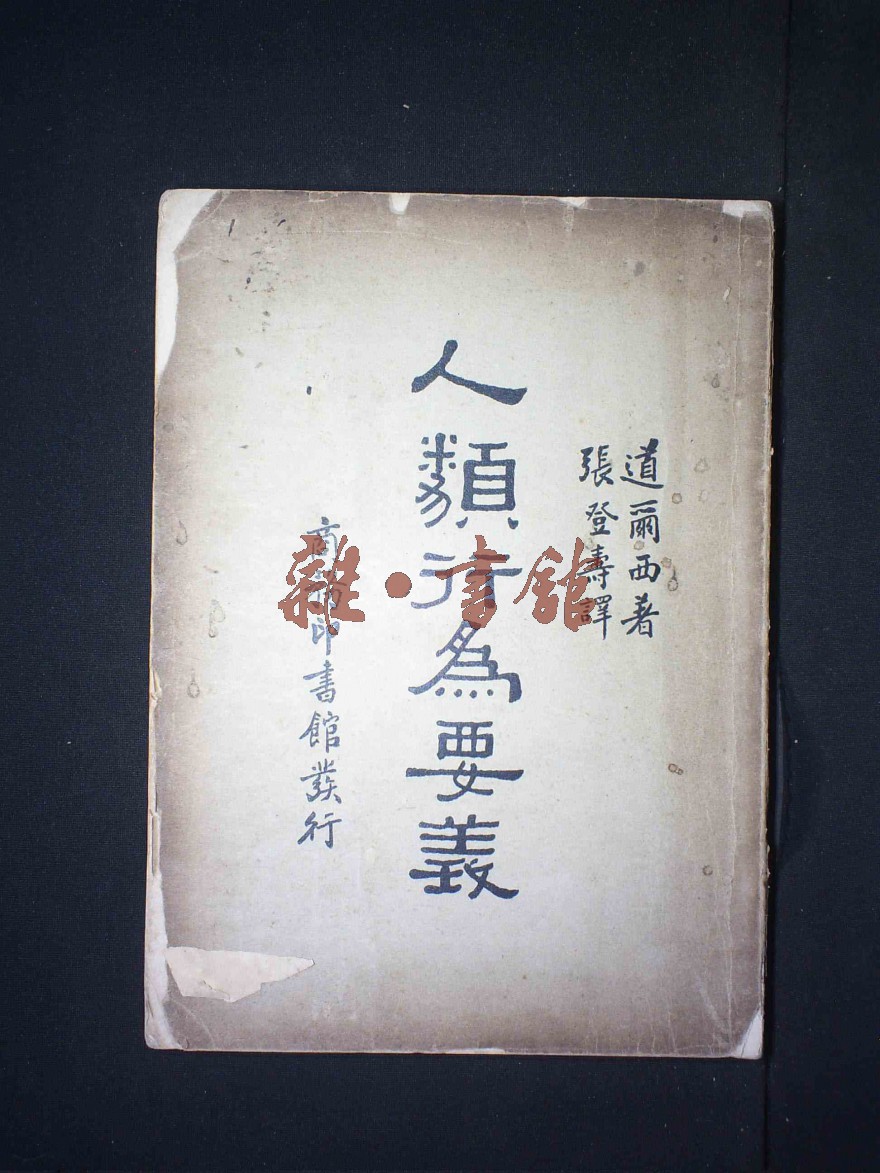 道爾西著
張登壽譯
人類行為要義
商務印書館發行
雜·書館